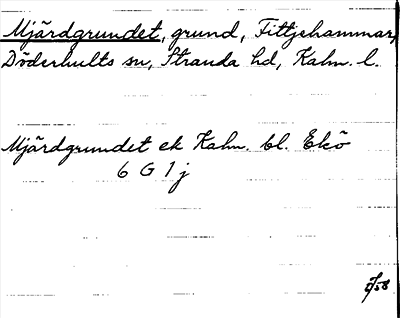 Mjärdgrundet, grund, Fittjehammar,
Döderhults sn, Stranda hd, Kalm. l.
Mjärdgrundet ek Kalm. bl. Ekö
6 G 1 j